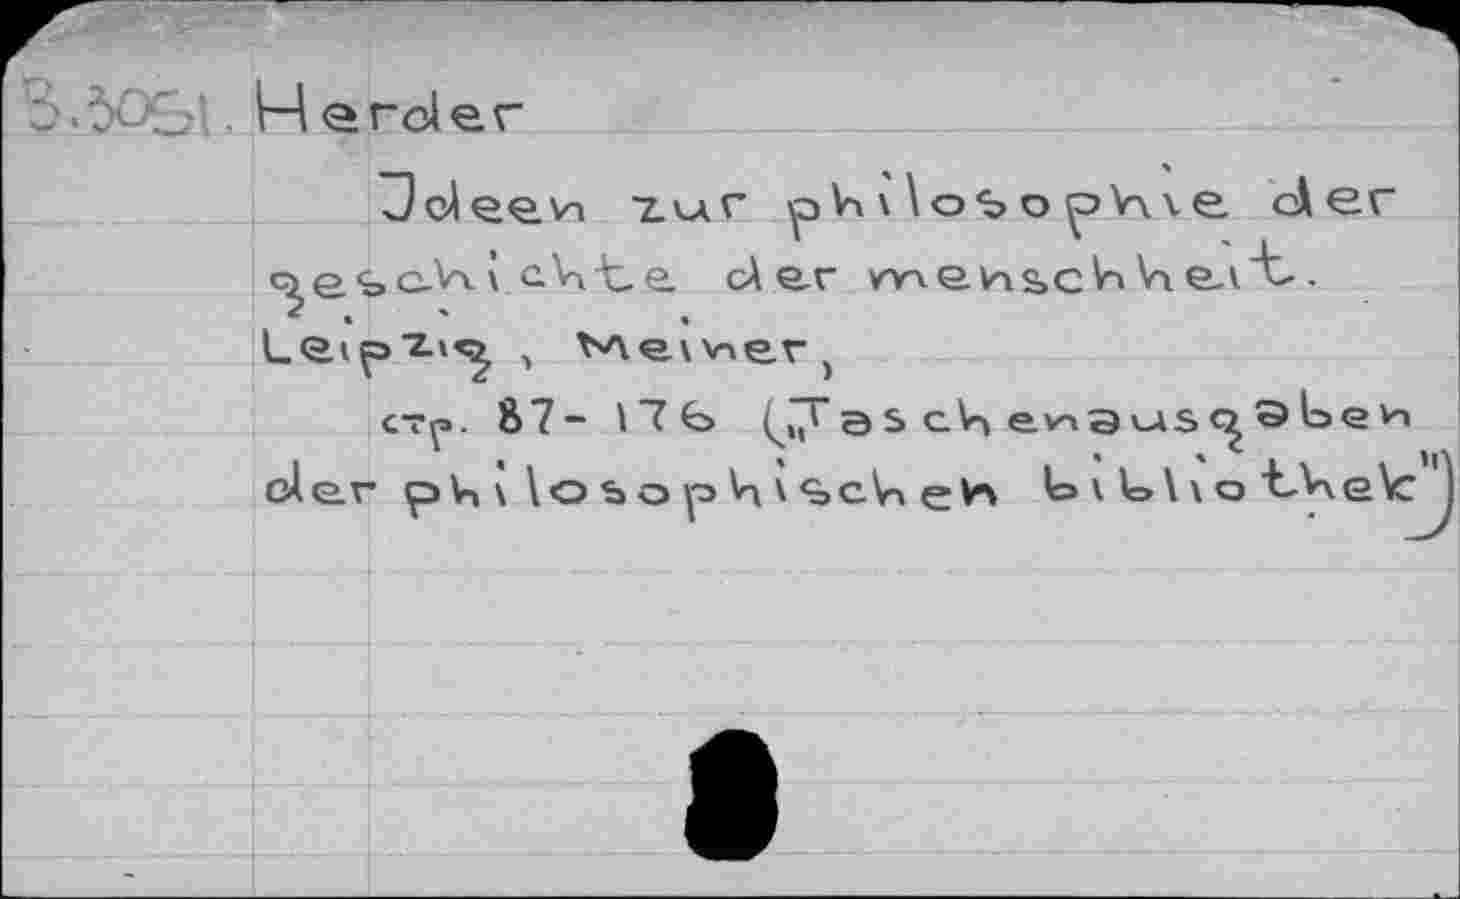 Herder
Ideen zur philosophie der
geschichte der menschheit.
Leipzig, Meiner,
стр. 87-176 („Taschenausgaben
der philosophischen bibliothek")